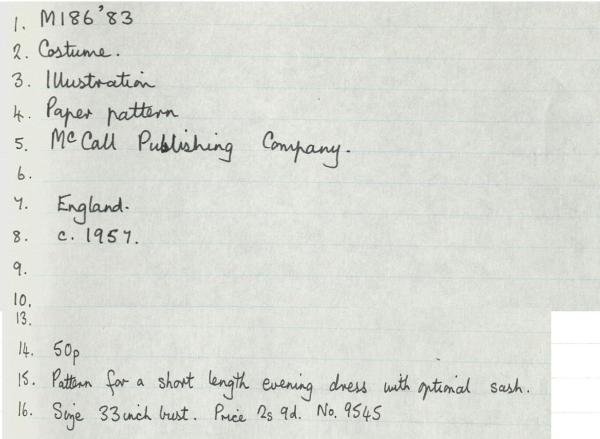 1. M186'83
2. Costume.
3. Illustration
4. Paper pattern
5. McCall Publishing Company.
6.
7. England.
8. c. 1957.
9.
10.
13.
14. 50p
15. Pattern for a short length evening dress with optional sash.
16. Size 33 inch bust. Price 2s 9d. No. 9545